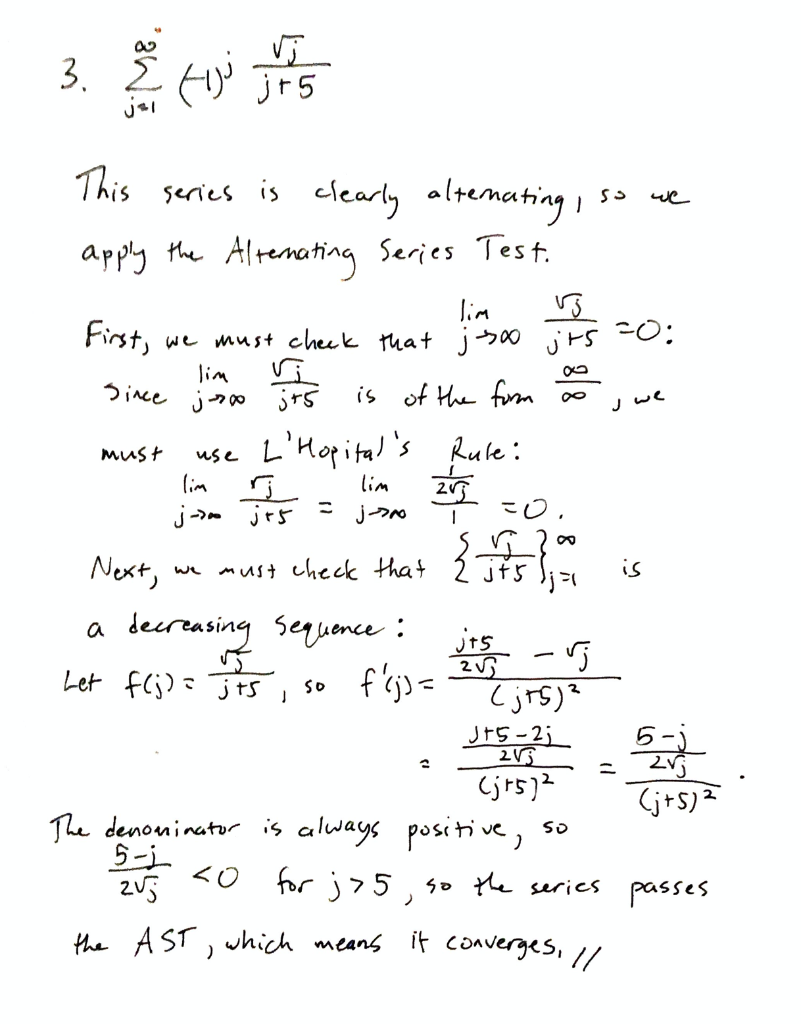 3. ∞ Σ j=1 (-1)^j √j / (j+5)
This series is clearly alternating, so we
apply the Alternating Series Test.
First, we must check that lim j→∞ √j / (j+5) = 0:
Since lim j→∞ √j / (j+5) is of the form ∞/∞, we
must use L'Hopital's Rule:
lim j→∞ √j / (j+5) = lim j→∞ (1/(2√j)) / 1 = 0.
Next, we must check that {√j / (j+5)}_{j=1}^∞ is
a decreasing sequence:
Let f(j) = √j / (j+5), so f'(j) = ((j+5)/(2√j) - √j) / (j+5)^2
= ((j+5-2j)/(2√j)) / (j+5)^2 = ((5-j)/(2√j)) / (j+5)^2.
The denominator is always positive, so
(5-j)/(2√j) < 0 for j > 5, so the series passes
the AST, which means it converges. //